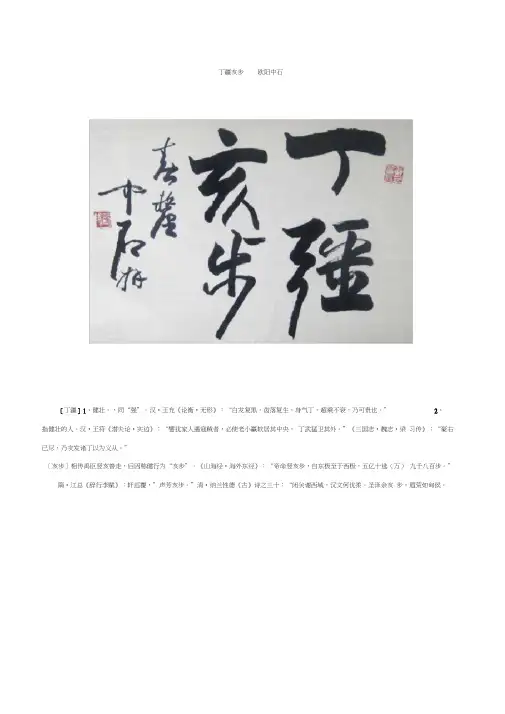 丁疆亥步 欧阳中石
丁疆
亥步
春馨
中石
[丁疆] 1．健壮．．同“强”．汉•王充《论衡•无形》：“白发复黑，齿落复生，身气丁，超乘不衰，乃可贵也．” 2．
指健壮的人．汉•王符《潜夫论•实边》：“譬犹家人遇寇贼者，必使老小羸软居其中央， 丁武猛卫其外．”《三国志•魏志•梁 习传》：“豪右
已尽，乃次发诸丁以为义从。”
〔亥步〕相传禹臣竖亥善走，后因称健行为“亥步”．《山海经•海外东经》：“帝命竖亥步，自东极至于西极，五亿十选〔万〕 九千八百步．”
隋•江总《辞行李赋》：轩巡覆，”声芳亥步．”清•纳兰性德《古》诗之三十：“闭关谢西域，汉文何优柔．圣泽余亥 步，道荒如甸侯．